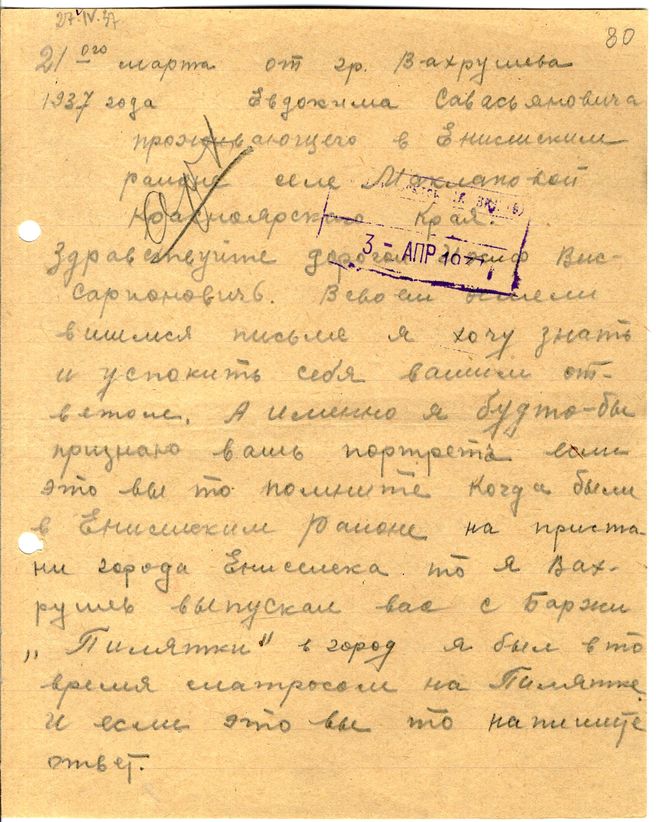 27.IV.37
80
21 ого марта от гр. Вахрушева
1937 года Евдокима Савасьяновича
проживающего в Енисиским
районе селе Маклаковой
Красноярского Края.
3 - АПР 1937
Здравствуйте дорогой Иосиф Вис-
сарионовичь. Всвоем осмели
вишимся письме я хочу знать
и успокить себя вашим от-
ветом. А именно я будто-бы
признаю вашь портреть если
это вы то помните Когда были
в Енисиским Районе на приста
ни города Енисиска то я Вах-
рушев выпускал вас с Баржи
„Пилятки" в город я был вто
время матросом на Пилятке
И если это вы то напишите
ответ.